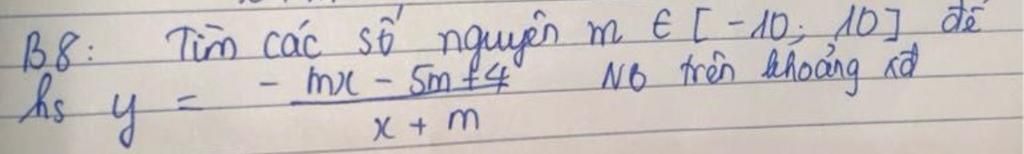 B8: Tìm các số nguyên m ∈ [-10; 10] để
hs y = (-mx - 5m + 4)/(x + m) NB trên khoảng xđ